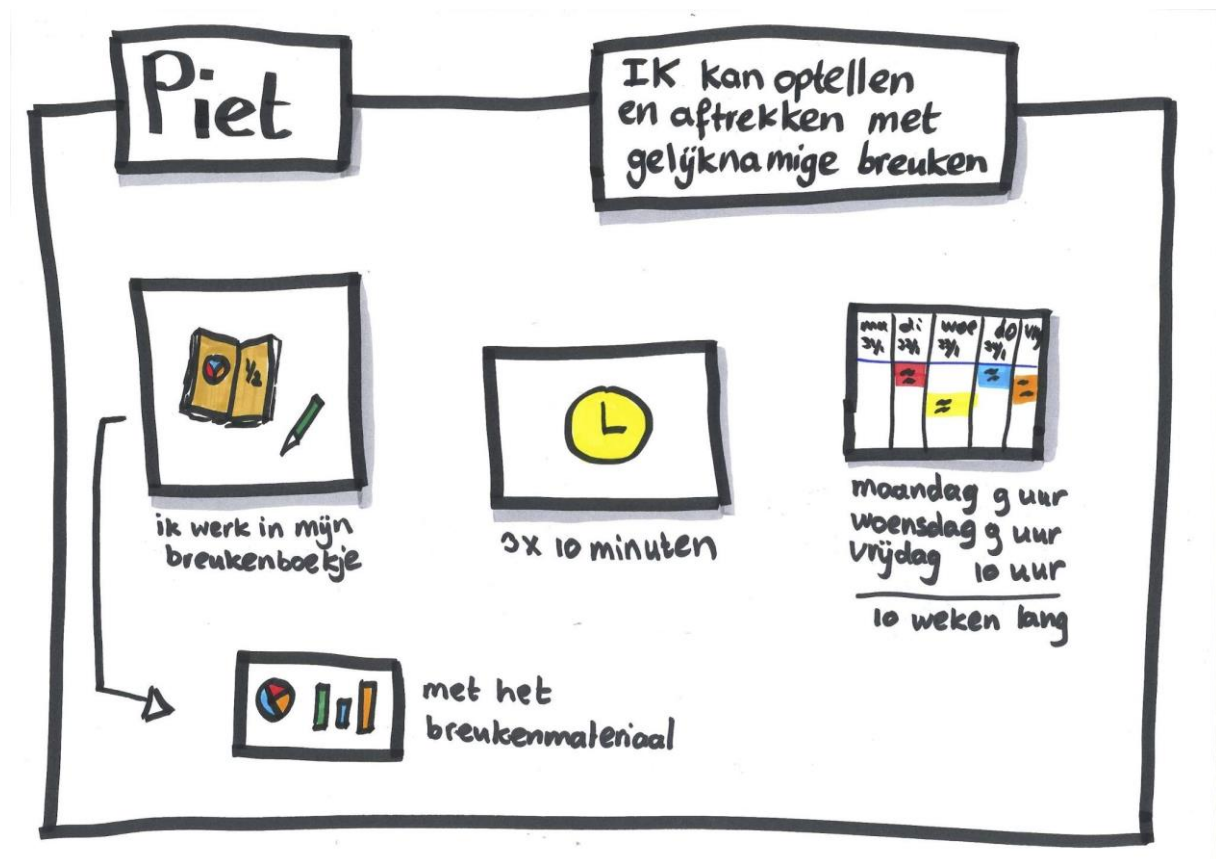 Piet
IK kan optellen
en aftrekken met
gelijknamige breuken
1/2
ik werk in mijn
breukenboekje
3x 10 minuten
ma di woe do vrij
maandag 9 uur
woensdag 9 uur
vrijdag 10 uur
10 weken lang
met het
breukenmateriaal